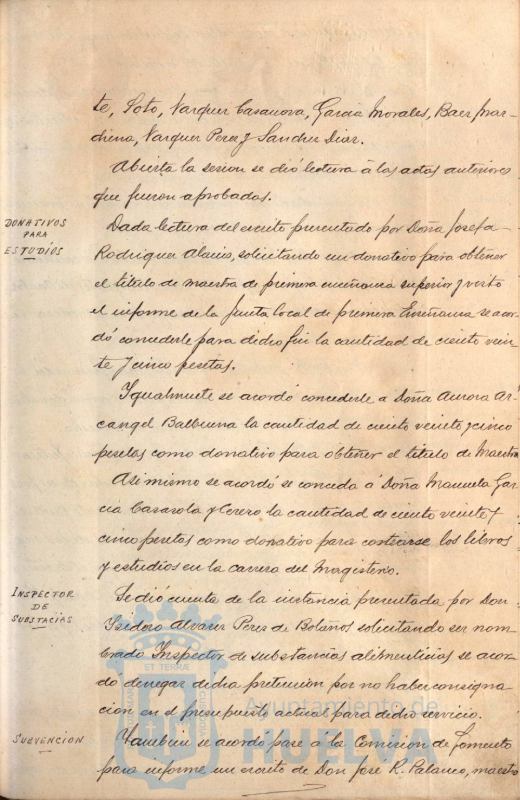 te, Soto, Vazquez Casanova, García Morales, Baez Mar-
chena, Vazquez Perez y Sanchez Diaz.
Abierta la sesion se dió lectura á las actas anteriores
que fueron aprobadas.
DONATIVOS
PARA
ESTUDIOS
Dada lectura del escrito presentado por Doña Josefa
Rodriguez Alanis, solicitando un donativo para obtener
el título de maestra de primera enseñanza superior y visto
el informe de la Junta local de primera Enseñanza se acor-
dó concederle para dicho fin la cantidad de ciento vein-
te y cinco pesetas.
Igualmente se acordó concederle a Doña Aurora Ar-
cangel Balbuena la cantidad de ciento veinte y cinco
pesetas como donativo para obtener el título de Maestra
Asi mismo se acordó se conceda á Doña Manuela Gar
cia Cazarola y Cerero la cantidad de ciento veinte y
cinco pesetas como donativo para costearse los libros
y estudios en la carrera del Magisterio.
INSPECTOR
DE
SUBSTACIAS
Se dió cuenta de la instancia presentada por Don
Isidoro Alvarez Perez de Bolaños solicitando ser nom-
brado Inspector de substancias alimenticias se acor-
do denegar dicha pretension por no haber consigna-
cion en el presupuesto actual para dicho servicio.
SUBVENCION
Tambien se acordó pase á la Comision de Fomento
para informe un escrito de Don Jose R. Palanco, maestro
Ayuntamiento de
HUELVA